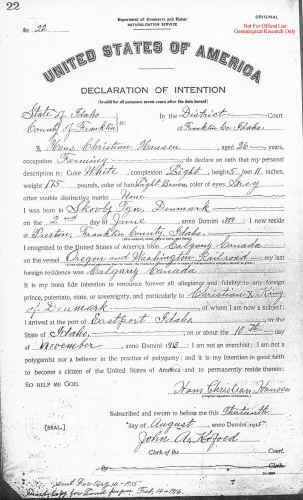 22
ORIGINAL
Department of Commerce and Labor
NATURALIZATION SERVICE
Not For Official Use
Genealogical Research Only
No. 22
UNITED STATES OF AMERICA
DECLARATION OF INTENTION
(Invalid for all purposes seven years after the date hereof)
State of Idaho
County of Franklin ss:
In the District Court
of Franklin Co. Idaho.
I, Hans Christian Hansen, aged 36 years,
occupation Farming, do declare on oath that my personal
description is: Color White, complexion Light, height 5 feet 11 inches,
weight 175 pounds, color of hair Light Brown, color of eyes Grey
other visible distinctive marks None
I was born in Denmark
on the day of June, anno Domini; I now reside
at Preston, Franklin County, Idaho.
I emigrated to the United States of America from Calgary Canada
on the vessel Oregon and Washington Railroad; my last
foreign residence was Calgary Canada
It is my bona fide intention to renounce forever all allegiance and fidelity to any foreign
prince, potentate, state, or sovereignty, and particularly to Christian X King
of Denmark, of whom I am now a subject;
I arrived at the port of Eastport Idaho, in the
State of Idaho, on or about the 10th day
of November, anno Domini; I am not an anarchist; I am not a
polygamist nor a believer in the practice of polygamy; and it is my intention in good faith
to become a citizen of the United States of America and to permanently reside therein:
SO HELP ME GOD.
Hans Christian Hansen
Subscribed and sworn to before me this Thirteenth
[SEAL.]
day of August, anno Domini 1915
John A. Kofoed
Clerk of the Court.